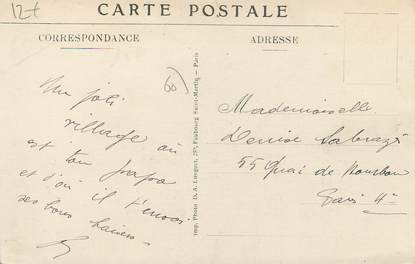 12t
CARTE POSTALE
CORRESPONDANCE
ADRESSE
60
Un joli
village où
est ton papa
et d'où il t'envoi
ses bons baisers
Imp. Photo D. A. Longuet, Faubourg Saint-Martin — Paris
Mademoiselle
Denise
55 Quai de Bourbon
Paris 4e